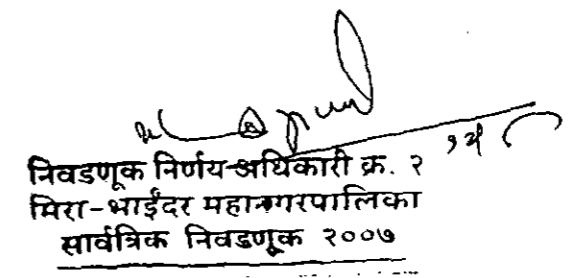 निवडणूक निर्णय अधिकारी क्र. २
मिरा-भाईंदर महानगरपालिका
सार्वत्रिक निवडणूक २००७